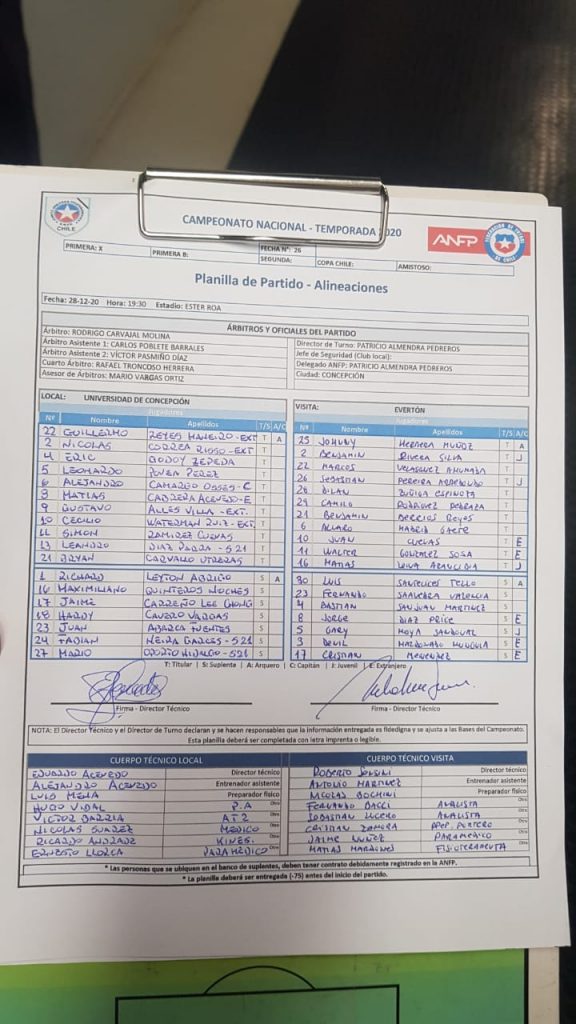 CHILE
CAMPEONATO NACIONAL - TEMPORADA 2020
ANFP
PRIMERA: X PRIMERA B: FECHA N°: 26
SEGUNDA: COPA CHILE: AMISTOSO:
Planilla de Partido - Alineaciones
Fecha: 28-12-20 Hora: 19:30 Estadio: ESTER ROA
ÁRBITROS Y OFICIALES DEL PARTIDO
Árbitro: RODRIGO CARVAJAL MOLINA Director de Turno: PATRICIO ALMENDRA PEDREROS
Árbitro Asistente 1: CARLOS POBLETE BARRALES Jefe de Seguridad (Club local):
Árbitro Asistente 2: VÍCTOR PASMIÑO DÍAZ Delegado ANFP: PATRICIO ALMENDRA PEDREROS
Cuarto Árbitro: RAFAEL TRONCOSO HERRERA Ciudad: CONCEPCIÓN
Asesor de Árbitros: MARIO VARGAS ORTIZ
LOCAL: UNIVERSIDAD DE CONCEPCIÓN VISITA: EVERTÓN
Jugadores Jugadores
Nº Nombre Apellidos T/S A/C Nº Nombre Apellidos T/S A/C
22 GUILLERMO REYES MANEIRO-EXT T A 25 JOHNNY HERRERA MUÑOZ T A
2 NICOLAS CORREA RISSO-EXT T 2 BENJAMIN RIVERA SILVA T J
4 ERIC GODOY ZEPEDA T 22 MARCOS VELASQUEZ AHUMADA T
5 LEONARDO POVEA PEREZ T 26 SEBASTIAN PEREIRA ARREDONDO T J
6 ALEJANDRO CAMARGO OSSES-C T 28 DILAN ZUÑIGA ESPINOZA T
8 MATIAS CABRERA ACEVEDO-E T 24 CAMILO RODRIGUEZ PEDRAZA T
9 GUSTAVO ALLES VILLA-EXT. T 21 BENJAMIN BERRIOS REYES T
10 CECILIO WATERMAN RUIZ-EXT T 6 ALVARO MADRID GAETE T
11 SIMON RAMIREZ CUEVAS T 10 JUAN CUEVAS T E
13 LEANDRO DIAZ PARRA-S21 T 11 WALTER GONZALEZ SOSA T E
21 BRYAN CARVALLO UTRERAS T 16 MATIAS LEIVA ARANCIBIA T J
1 RICHARD LEYTON ABRIGO S A 30 LUIS SANTELICES TELLO S A
16 MAXIMILIANO QUINTEROS NOCHES S 23 FERNANDO SAAVEDRA VALENCIA S
17 JAIME CARREÑO LEE CHONG S 4 BASTIAN SANJUAN MARTINEZ S
18 HARDY CAVERO VARGAS S 8 JORGE DIAZ PRICE S E
23 JUAN ABARCA FUENTES S 5 GARY MOYA SANDOVAL S J
24 FABIAN NEIRA GARCES-S21 S 3 DENIL MALDONADO MUNGUIA S E
27 MARIO OSORIO HIDALGO-S21 S 17 CRISTIAN MENENDEZ S E
T: Titular | S: Suplente | A: Arquero | C: Capitán | J: Juvenil | E: Extranjero
Firma - Director Técnico Firma - Director Técnico
NOTA: El Director Técnico y el Director de Turno declaran y se hacen responsables que la información entregada es fidedigna y se ajusta a las Bases del Campeonato.
Esta planilla deberá ser completada con letra imprenta o legible.
CUERPO TÉCNICO LOCAL CUERPO TÉCNICO VISITA
EDUARDO ACEVEDO Director técnico ROBERTO SENSINI Director técnico
ALEJANDRO ACEVEDO Entrenador asistente ANTONIO MARTINEZ Entrenador asistente
LUIS MENA Preparador físico NICOLAS BOCHINI Preparador físico
HUGO VIDAL P.A Otro FERNANDO BACCI ANALISTA Otro
VICTOR BARRIA AT2 Otro SEBASTIAN LUCERO ANALISTA Otro
NICOLAS SUAREZ MEDICO Otro CRISTIAN ZAMORA PREP. PORTERO Otro
RICARDO ANDRADE KINES. Otro JAIME NUÑEZ PARAMEDICO Otro
ERNESTO LLORCA PARAMEDICO Otro MATIAS MARDONES FISIOTERAPEUTA Otro
* Las personas que se ubiquen en el banco de suplentes, deben tener contrato debidamente registrado en la ANFP.
* La planilla deberá ser entregada (-75) antes del inicio del partido.